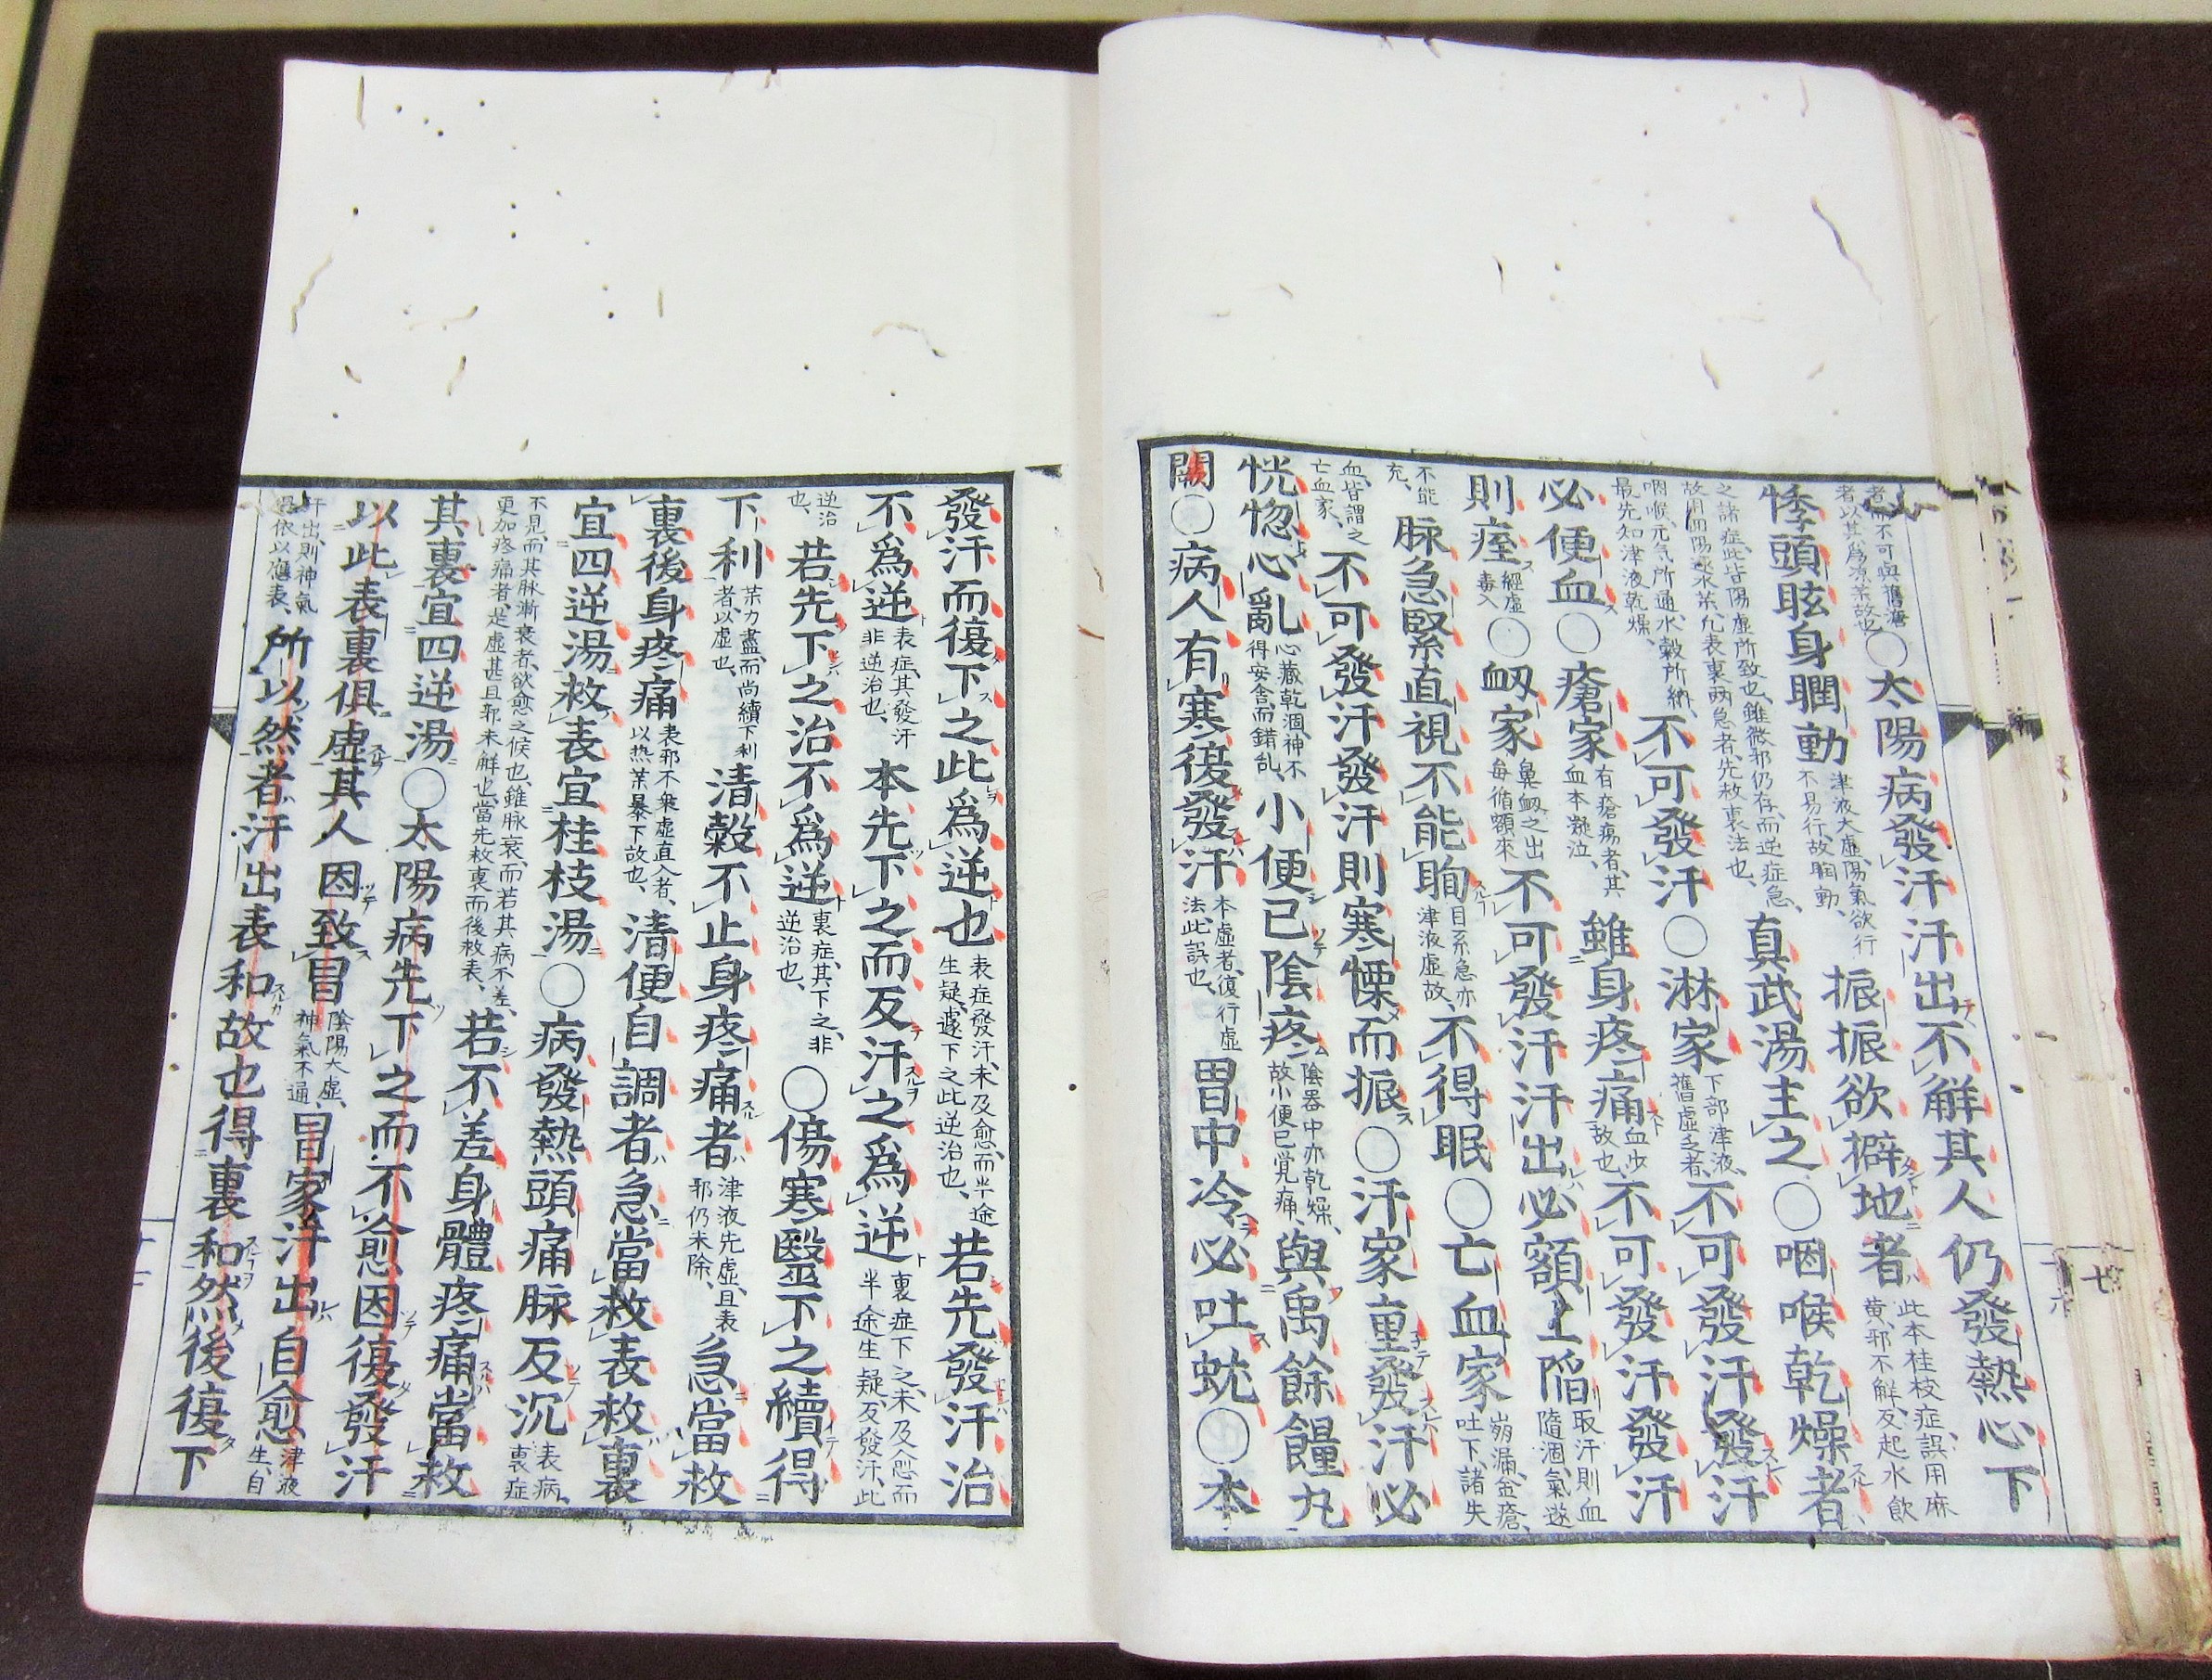 者而不可與舊瀉
者以其爲凉茶故也
○太陽病發汗汗出不解其人仍發熱心下
悸頭眩身瞤動
津液大虛陽氣欲行
不易行故瞤動
振振欲擗地者
此本桂枝症誤用麻
黄邪不解反起水飲
之諸症此皆陽虛所致也雖微邪仍存而逆症急
故用四陽逐水茶凢表裏兩急者先救裏法也
真武湯主之○咽喉乾燥者
咽喉元氣所通水穀所納
最先知津液乾燥
不可發汗○淋家
下部津液
舊虛乏者
不可發汗發汗
必便血○瘡家
有瘡瘍者其
血本凝泣
雖身疼痛
血少
故也
不可發汗發汗
則痓
經虛
毒入
○衂家
鼻衂之出
每循額來
不可發汗汗出必額上陷
取汗則血
隨涸氣遂
不能
充
脉急緊直視不能眴
目系急亦
津液虛故
不得眠○亡血家
崩漏金瘡
吐下諸失
血皆謂之
亡血家
不可發汗發汗則寒慄而振○汗家重發汗必
恍惚心亂
心藏乾涸神不
得安舍而錯乱
小便已陰疼
陰器中亦乾燥
故小便已覚痛
與禹餘糧丸
闕○病人有寒復發汗
本虛者復行虛
法此誤也
胃中冷必吐蚘○本
發汗而復下之此爲逆也
表症發汗未及愈而半途
生疑遽下之此逆治也
若先發汗治
不爲逆
表症其發汗
非逆治也
本先下之而反汗之爲逆
裏症下之未及愈而
半途生疑反發汗此
逆治
也
若先下之治不爲逆
裏症其下之非
逆治也
○傷寒醫下之續得
下利
茶力盡而尚續下利
者以虛也
清穀不止身疼痛者
津液先虛且表
邪仍未除
急當救
裏後身疼痛
表邪不乗虛直入者
以熱茶暴下故也
清便自調者急當救表救裏
宜四逆湯救表宜桂枝湯○病發熱頭痛脉反沉
表病
裏症
不見而其脉漸衰者欲愈之候也雖脉衰而若其病不差
更加疼痛者是虛甚且邪未解也當先救裏而後救表
若不差身體疼痛當救
其裏宜四逆湯○太陽病先下之而不愈因復發汗
以此表裏俱虛其人因致冒
陰陽大虛
神氣不通
冒家汗出自愈
津液
生自
汗出則神氣
得依以應表
所以然者汗出表和故也得裏和然後復下